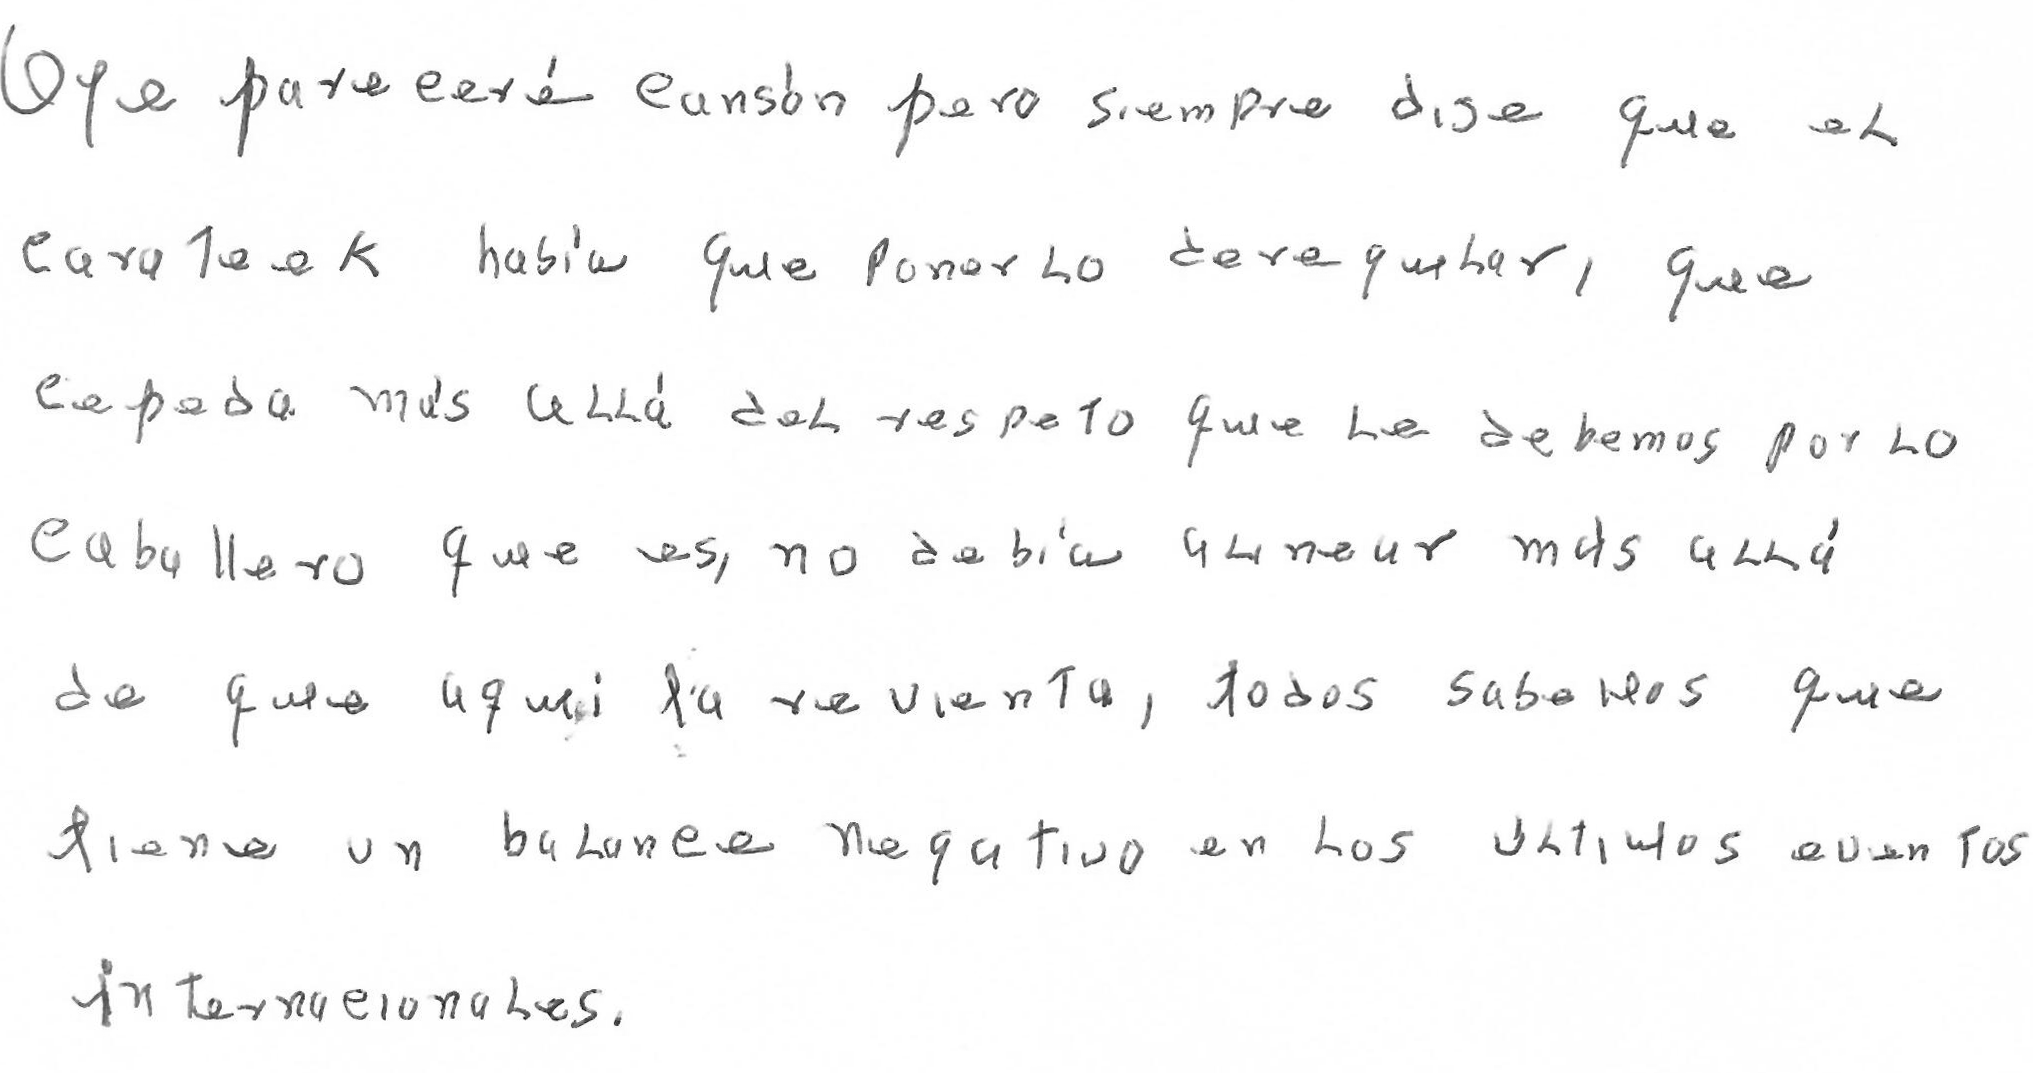 Oye pareceré cansón pero siempre dije que el
carateek había que ponerlo derequhar, que
cepeda más allá del respeto que le debemos por lo
caballero que es, no debía alinear más allá
de que aqui la revienta, todos sabemos que
tiene un balance negativo en los últimos eventos
internacionales.